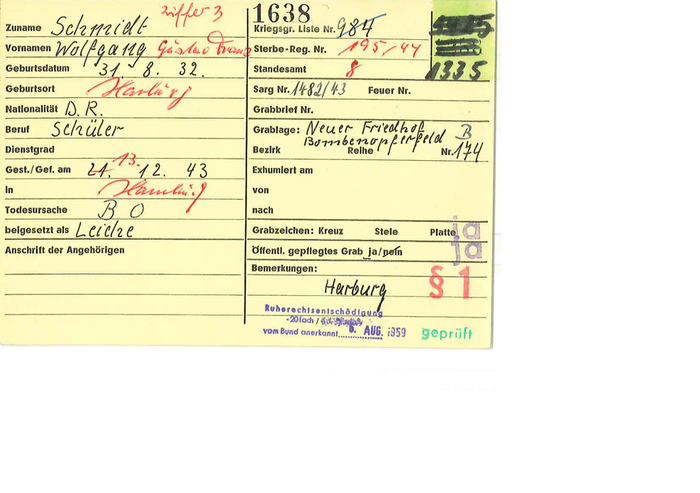 Ziffer 3
Zuname Schmidt
Vornamen Wolfgang Gustav Franz
Geburtsdatum 31. 8. 32.
Geburtsort Harburg
Nationalität D. R.
Beruf Schüler
Dienstgrad
Gest./Gef. am 21. 13. 12. 43
in Hamburg
Todesursache B O
beigesetzt als Leiche
Anschrift der Angehörigen
1638
Kriegsgr. Liste Nr. 984
Sterbe-Reg. Nr. 195/44
Standesamt 8
1335
Sarg Nr. 1482/43 Feuer Nr.
Grabbrief Nr.
Grablage: Neuer Friedhof B
Bombenopferfeld
Bezirk Reihe Nr. 174
Exhumiert am
von
nach
Grabzeichen: Kreuz Stele Platte ja
Öffentl. gepflegtes Grab ja/nein ja
Bemerkungen:
Harburg § 1
Ruherechtsentschädigung
-20fach /
vom Bund anerkannt 6. AUG. 1959
geprüft